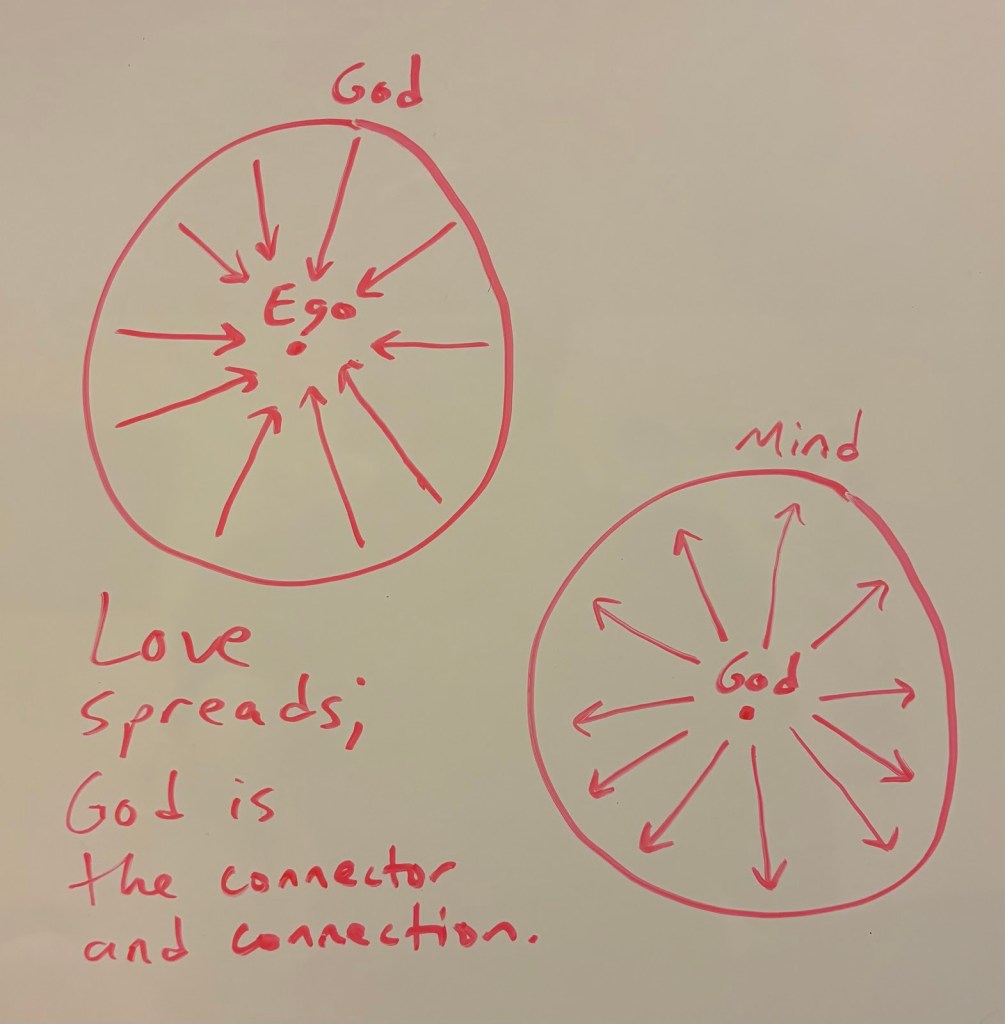 God
Ego
Mind
God
Love
spreads;
God is
the connector
and connection.